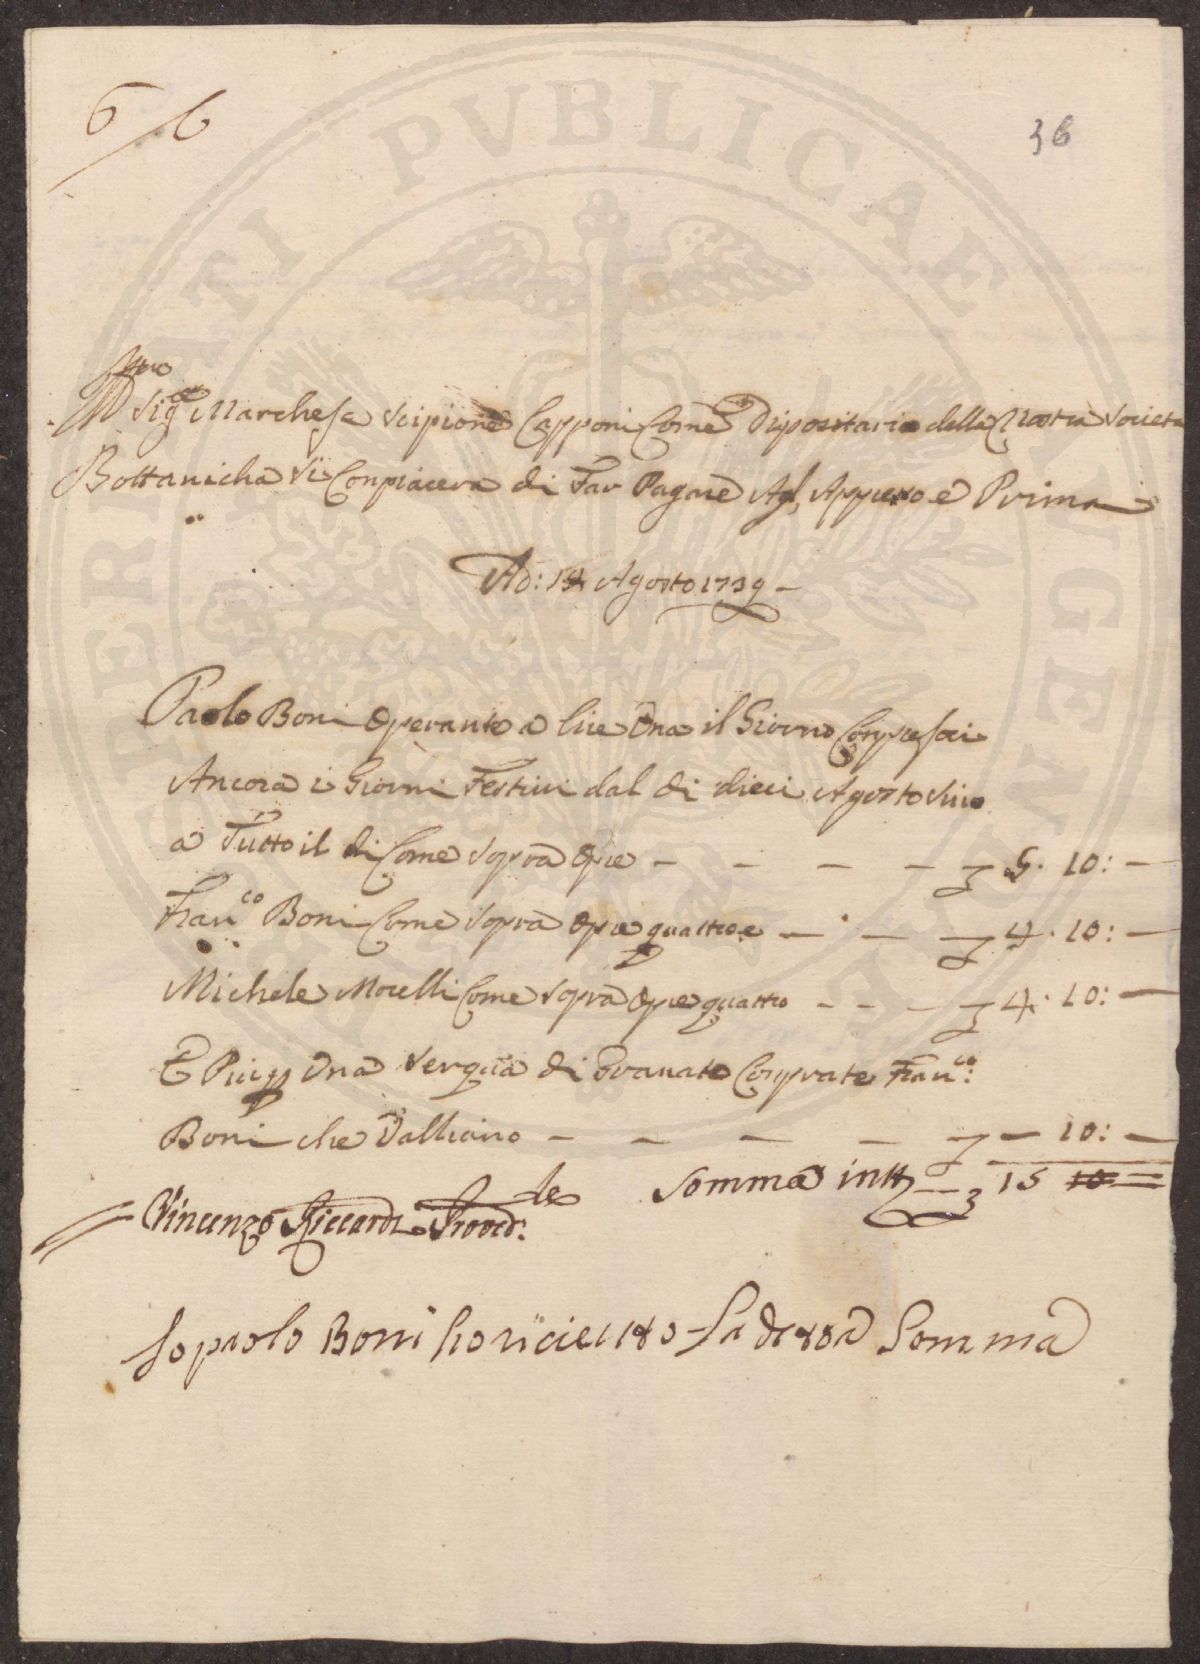 6/6
36
Ill.mo Sig.re Marchese Scipione Capponi Come Dipositario della Nostra Società
Bottanicha Si Conpiacera di Far Pagare Agl, Appiero e Prima
Ad: 14 Agosto 1739 —
Paolo Boni Operante a lire Una il Giorno Conpresovi
Ancora i Giorni Festivi dal di dieci Agosto Sino
a Tutto il di Come Sopra Opre — — — — 5. 10: —
Fran.co Boni Come Sopra Opre quattro e — — — 4. 10: —
Michele Morelli Come Sopra Opre quattro — — — 4. 10: —
E Piu p Una Serqua di Granate Conprate Fran.co:
Boni che Vagliano — — — — — 10: —
Somma in tt — 15 10 =
Vincenzo Riccardi Proved:re
Io paolo Boni ho riceuto la deta Somma